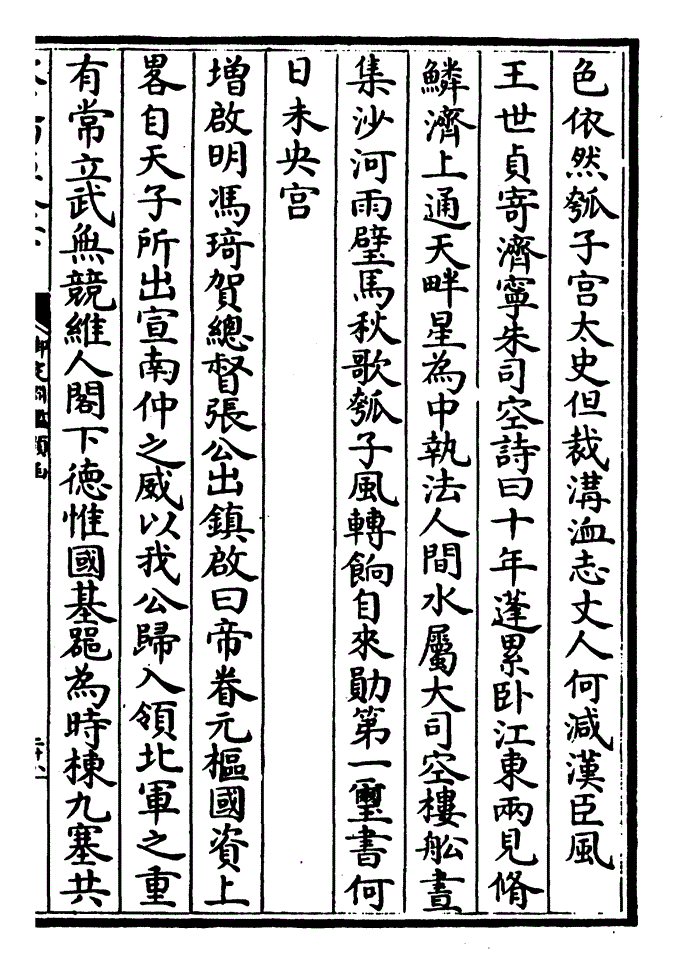 色依然瓠子宫太史但裁溝洫志丈人何减漢臣風
王世貞寄濟寧朱司空詩曰十年蓬累卧江東兩見脩
鱗濟上通天畔星為中執法人間水屬大司空樓舩晝
集沙河雨璧馬秋歌瓠子風轉餉自來勛第一璽書何
日未央宫
增啟明馮琦賀總督張公出鎮啟曰帝眷元樞國資上
畧自天子所出宣南仲之威以我公歸入領北軍之重
有常立武無競維人閣下德惟國基噐為時棟九塞共